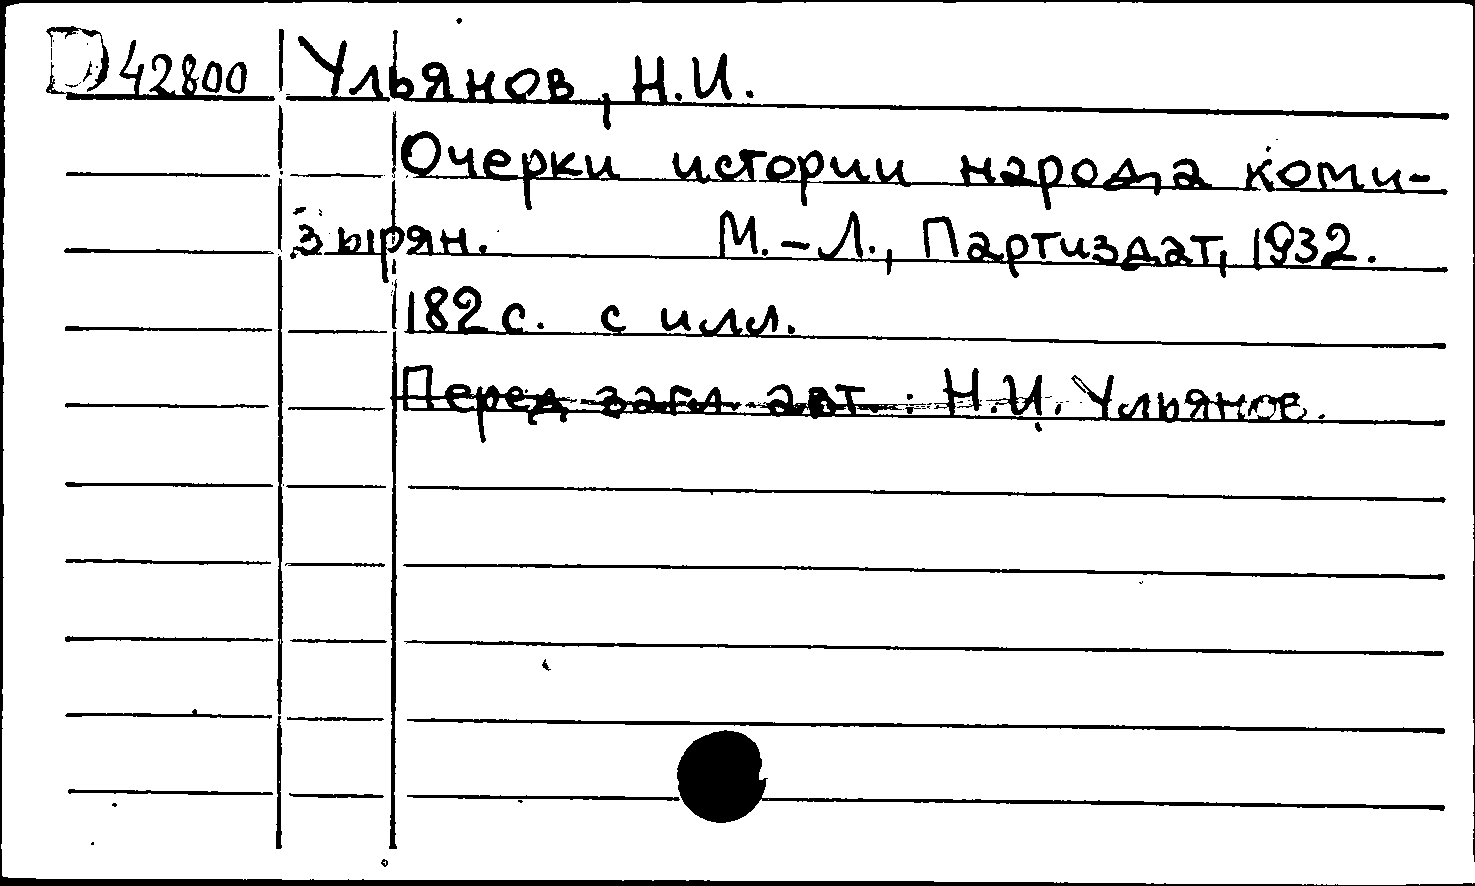 D 42800 Ульянов, Н.И.
Очерки истории народа коми-
зырян. М.-Л., Партиздат, 1932.
182 с. с илл.
Перед загл. авт.: Н.И. Ульянов.